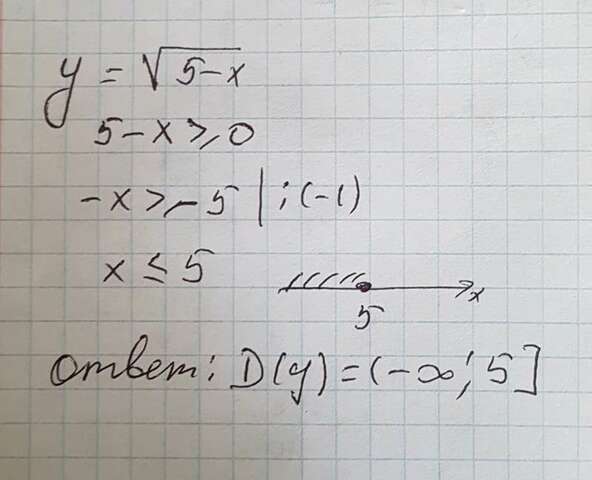 y = √5-x
5-x ≥ 0
-x ≥ -5 | :(-1)
x ≤ 5
x
5
Ответ: D(y) = (-∞; 5]